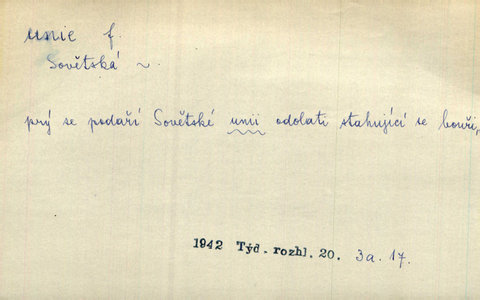 unie f.
Sovětská ~.
prý se podaří Sovětské unii odolati stahující se bouři,
1942 Týd. rozhl. 20. 3a. 17.